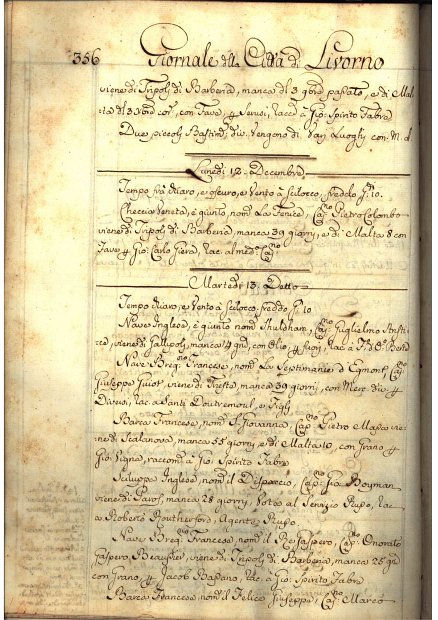 356 Giornale della Città di Livorno
viene di Tripoli di Barberia, manca dl 3 9bre passato, e di Mal-
ta dl 3 cor.e, con Fave, p Servizi, racc.d a Gio: Spirito Fabre
Due piccoli Bastim.ti div. Vengono di Van Luoghi con: M. d.
Lunedì 12. Decembre
Tempo frà chiaro, e oscuro, e Vento à Scilocco, freddo g. 10.
Checcia Veneta, è giunto, nom.a La Fenice, Cap.no Pietro Colombo
viene di Tripoli di Barberia, manca 39 giorni, e di Malta 8 con
Fave p Gio: Carlo Giera, rac. al med.o Cap.no
Martedì 13. Detto
Tempo chiaro, e Vento à Scilocco, freddo g. 10
Nave Inglese, è giunto nom.a Shuldham, Cap.no Guglielmo
viene di Gallipoli, manca 4 con Olio, p fuori, rac. a
Nave Breq: Francese, nom.a La Septimanie d'Egmont, Cap.no
Giuseppe Guiot, viene di Trieste, manca 39 giorni, con Merc. div. p
Diversi, rac. a Santi Doutremoul, e Figli
Barca Francese, nom.a S. Giovanna, Cap.no Pietro Masco vie-
ne di Scalanova, manca 55 giorni, e di Malta 10, con Grano, p
Gio: racconi. a Gio: Spirito Fabre
Sciluppa Inglese, nom.a il Dispaccio, Cap.no Gia: Boyman,
viene di Paros, manca 28 giorni, Vota al Servizio Russo, rac.
a Roberto Routherford, Agente Russo.
Nave Breq: Francese, nom.a il Re Gaspero, Cap.no Onorato
Gaspero Beaussier, viene di Tripoli di Barberia, manca 25 gni
con Grano, p Jacob Bassano, rac. a Gio: Spirito Fabre
Barca Francese, nom.a il Felice Giuseppe, Cap.no Marco